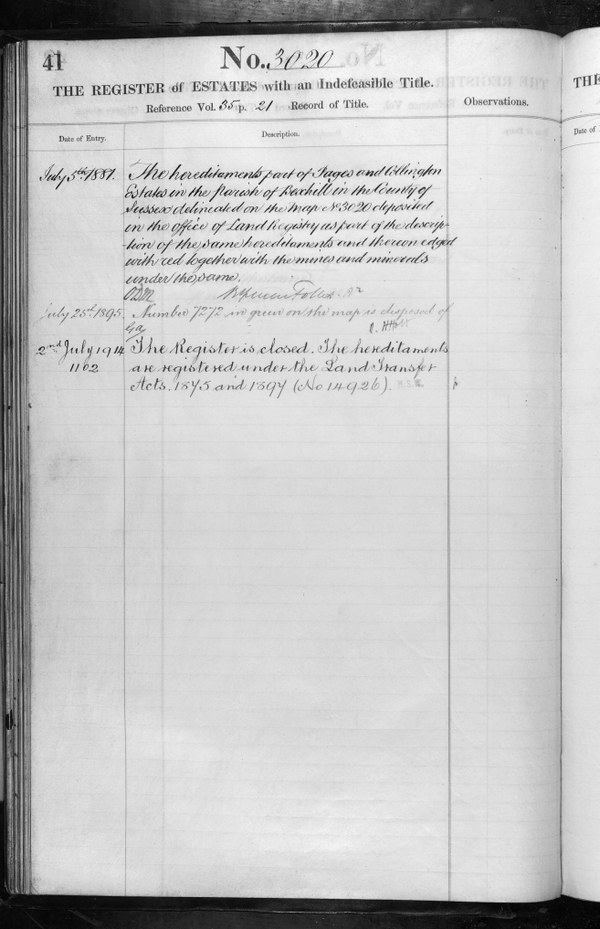 41
No. 3020
THE REGISTER of ESTATES with an Indefeasible Title.
Reference Vol. 35 p. 21 Record of Title.
Observations.
Date of Entry.
Description.
July 5th 1881.
The hereditaments part of Pages and Collington
Estates in the Parish of Bexhill in the County of
Sussex delineated on the Map No 3020 deposited
in the office of Land Registry as part of the descrip-
-tion of the same hereditaments and thereon edged
with red together with the mines and minerals
under the same.
July 25th 1895.
Number 7272 in green on the map is disposed of
2nd July 1914
1162
The Register is closed. The hereditaments
are registered under the Land Transfer
Acts. 1875 and 1897 (No 14926).
THE
Date of